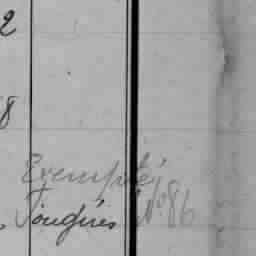 2
8
Exempté
Fougères N° 86